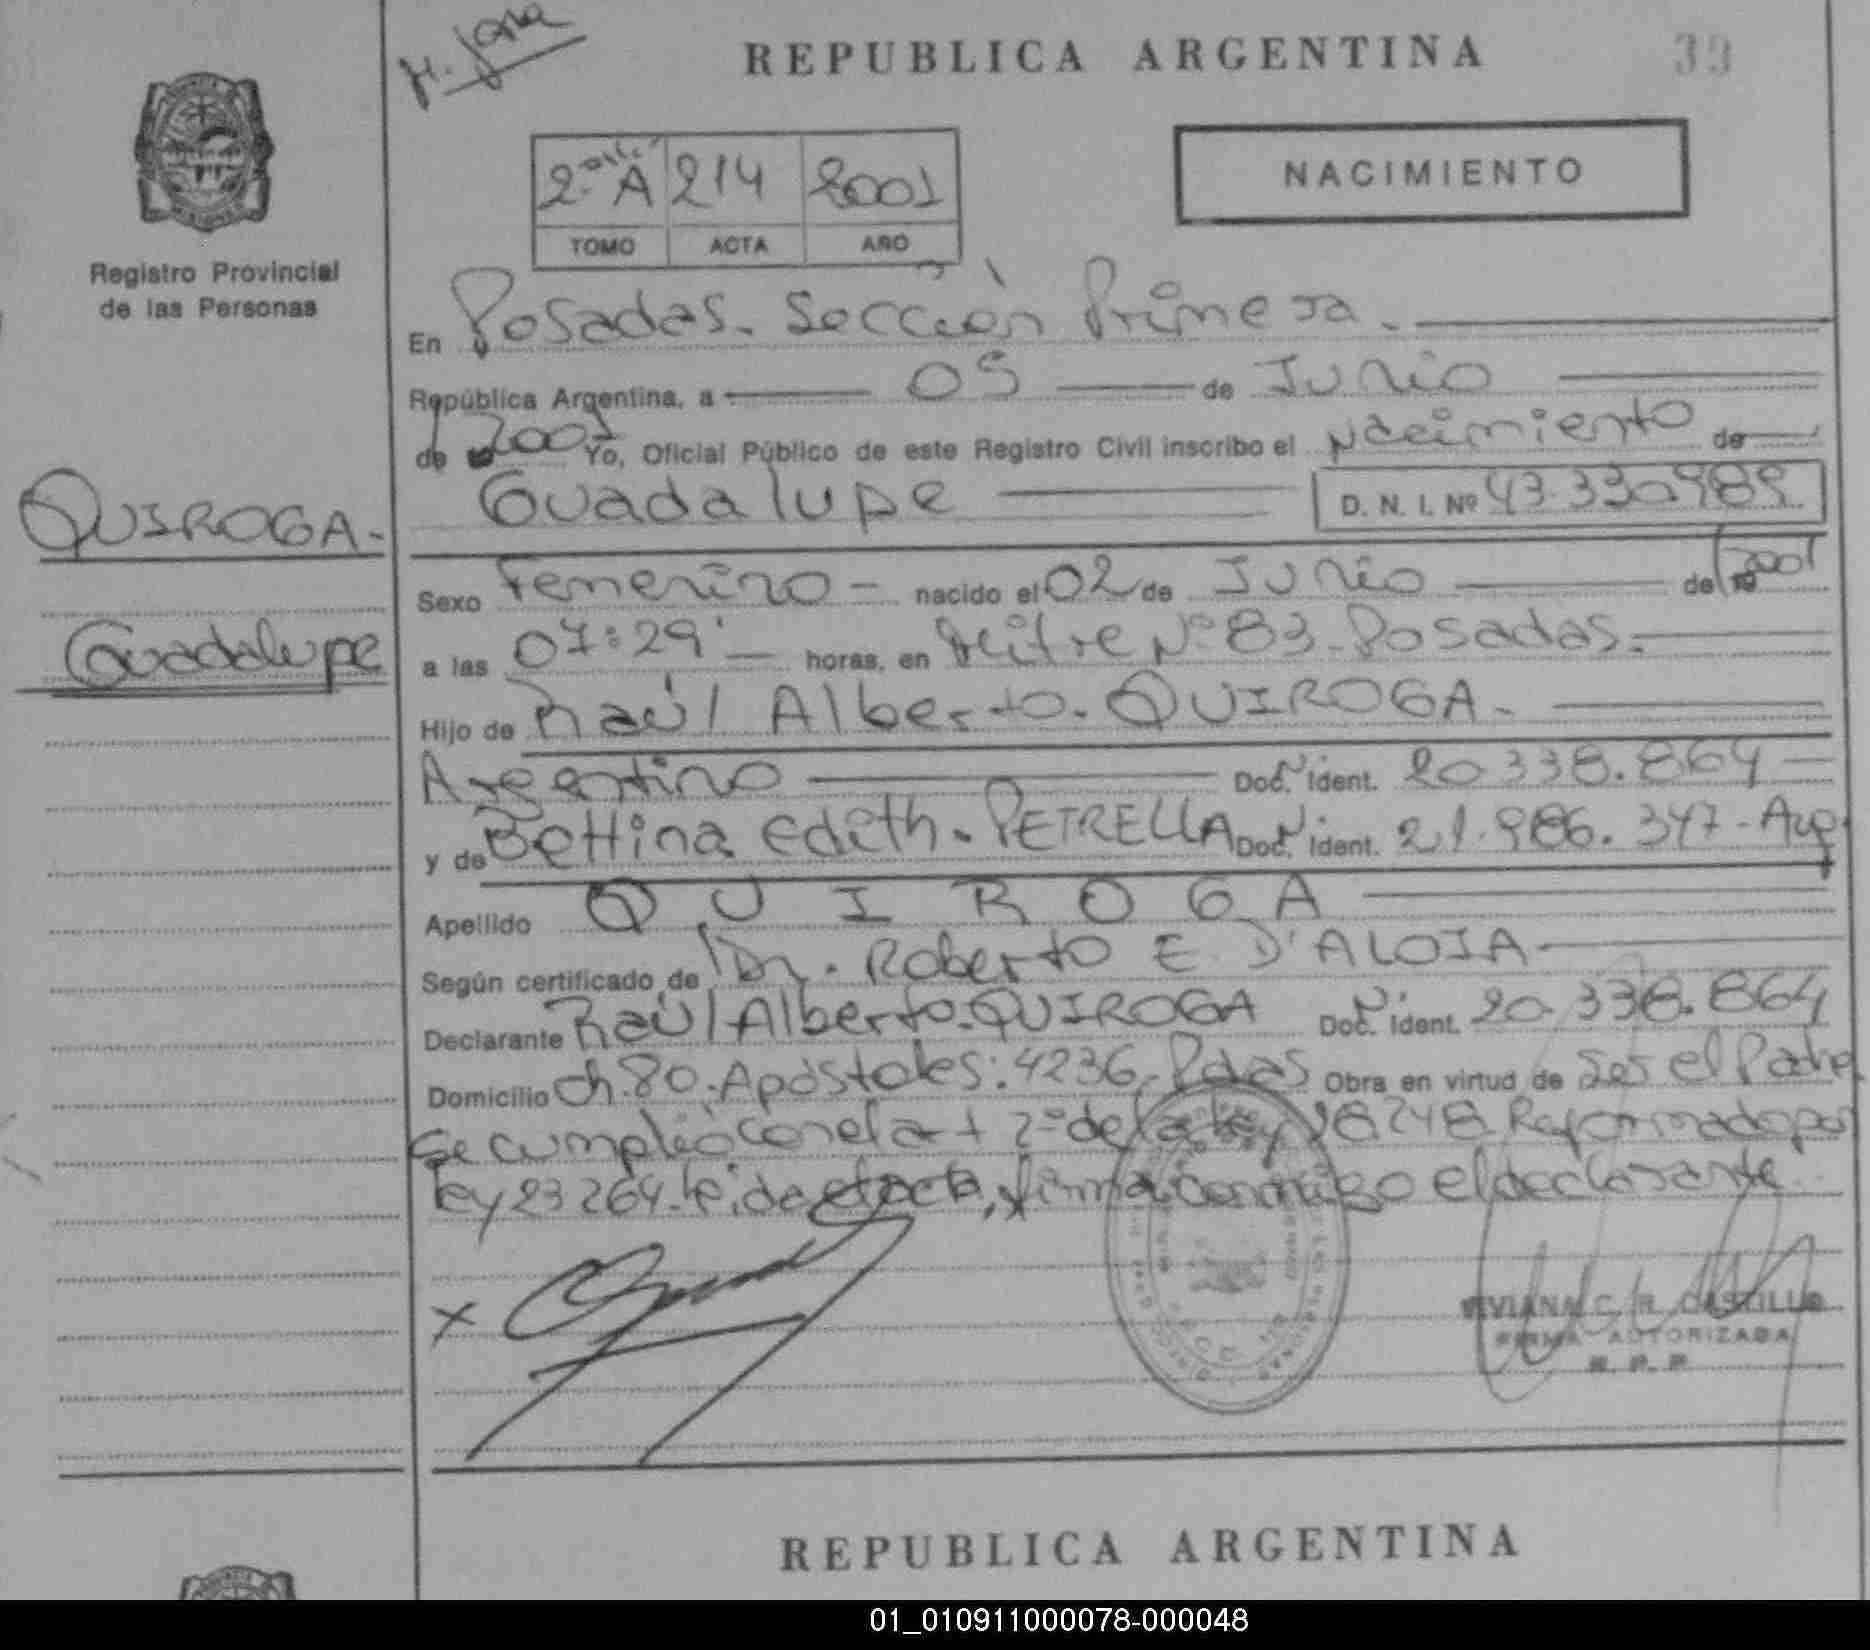 REPUBLICA ARGENTINA
33
2º A 214 2001
TOMO ACTA AÑO
NACIMIENTO
Registro Provincial
de las Personas
En Posadas. Sección Primera.
República Argentina, a 05 de Junio
de 2001 Yo, Oficial Público de este Registro Civil inscribo el Nacimiento de
Guadalupe D. N. I. Nº 43.330.989
QUIROGA.
Guadalupe
Sexo Femenino - nacido el 02 de Junio de 2001
a las 07:29' horas, en Mitre Nº 83. Posadas.
Hijo de Raúl Alberto. QUIROGA.
Argentino Doc. Ident. 20.338.864
y de Bettina Edith. PETRELLA Doc. Ident. 21.986.347 - Arg.
Apellido QUIROGA
Según certificado de Dr. Roberto E. D'ALOIA
Declarante Raúl Alberto. QUIROGA Doc. Ident. 20.338.864
Domicilio Ch. 80. Apóstoles: 4236. Pdas Obra en virtud de ser el Padre
se cumplió con el art 2º de la Ley 18248 Reformado por
Ley 23264. Leida el acta, firma conmigo el declarante.
X
VIVIANA C. R. CASTILLO
FIRMA AUTORIZADA
R. P. P.
REPUBLICA ARGENTINA
01_010911000078-000048